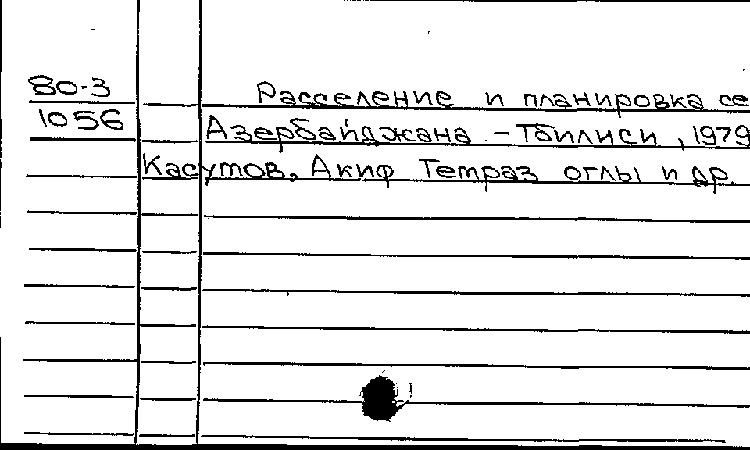 80-3
Расселение и планировка се
1056
Азербайджана - Тбилиси, 1979
Касумов, Акиф Тетраз оглы и др.